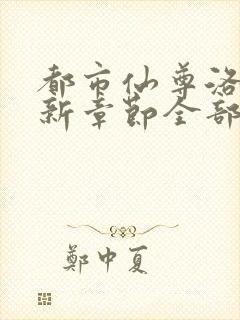 都市仙尊洛
新章节全部
鄭中夏